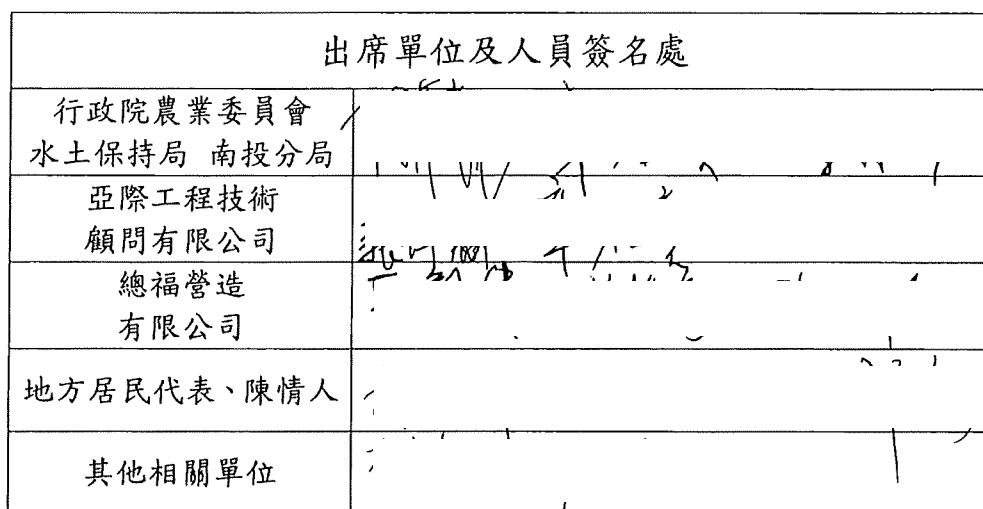 出席單位及人員簽名處
行政院農業委員會
水土保持局 南投分局
亞際工程技術
顧問有限公司
總福營造
有限公司
地方居民代表、陳情人
其他相關單位